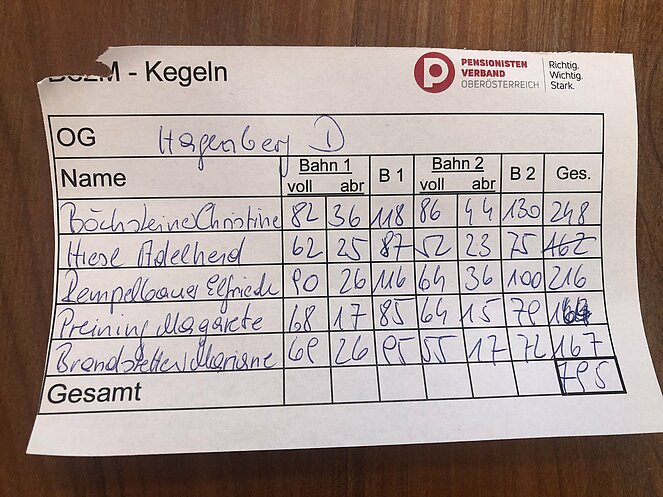 BezM - Kegeln
PENSIONISTEN
VERBAND
OBERÖSTERREICH
Richtig.
Wichtig.
Stark.
OG Hagenberg D
Name Bahn 1 voll abr B 1 Bahn 2 voll abr B 2 Ges.
Christine 82 36 118 86 44 130 248
Hiesl Adelheid 62 25 87 52 23 75 162
Rempelbauer Elfriede 90 26 116 64 36 100 216
Preining Magarete 68 17 85 64 15 79 164
Brandstetter Mariane 69 26 95 55 17 72 167
Gesamt 795